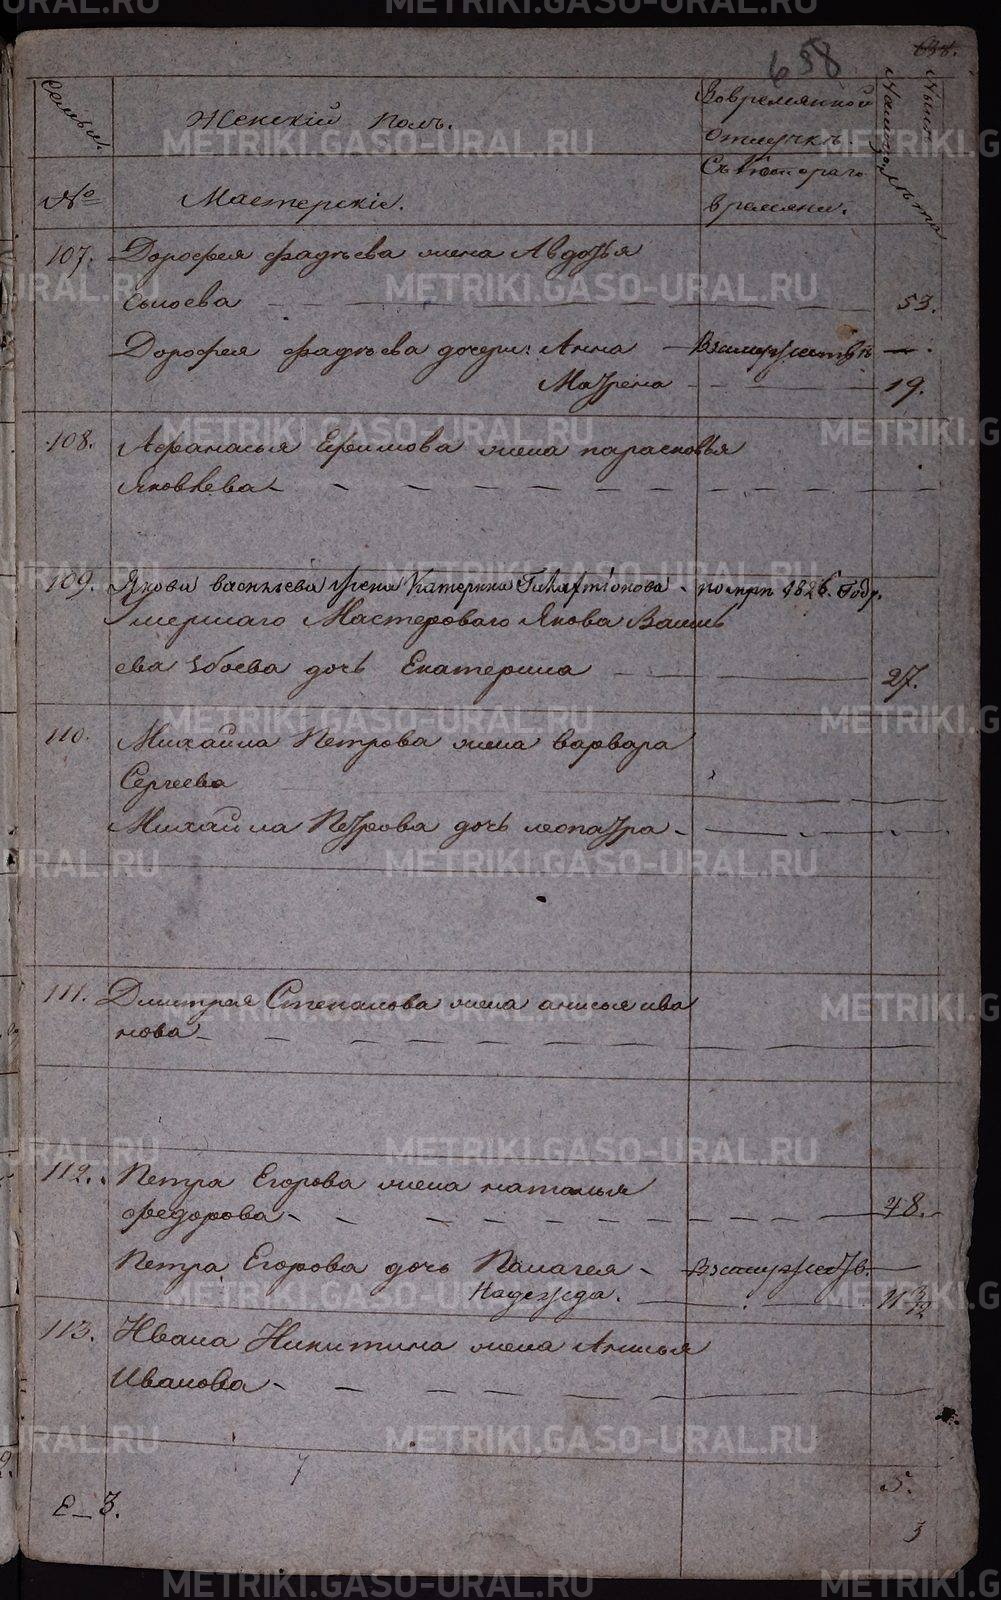 658
638.
Семьи.
Женскій полъ.
Вовремянной
отлучкѣ.
Съ котораго
времяни.
Налицо
Нынѣ
лѣта
№
Мастерскіе.
107. Дорофея фадѣева жена Авдотья
сысоева 53.
Дорофея фадѣева дочери: Анна Взамужствѣ
Матрена 19.
108. Афанасья Ефимова жена парасковья
яковлева
109. Якова васильева жена Катерина Галактіонова помрп 1826. Году.
Умершаго Мастероваго Якова Василь
ева Зобоева дочь Екатерина 27.
110. Михайла Петрова жена варвара
Сергеева
Михайла Петрова дочь леопатра
111. Дмитрея Степанова жена анисья ива
нова
112. Петра Егорова жена наталья
федорова 48.
Петра Егорова дочь Палагея Взамужств.
Надежда. 11
113. Ивана Никитина жена Анисья
Иванова
5.
Е_З.
3
METRIKI.GASO-URAL.RU